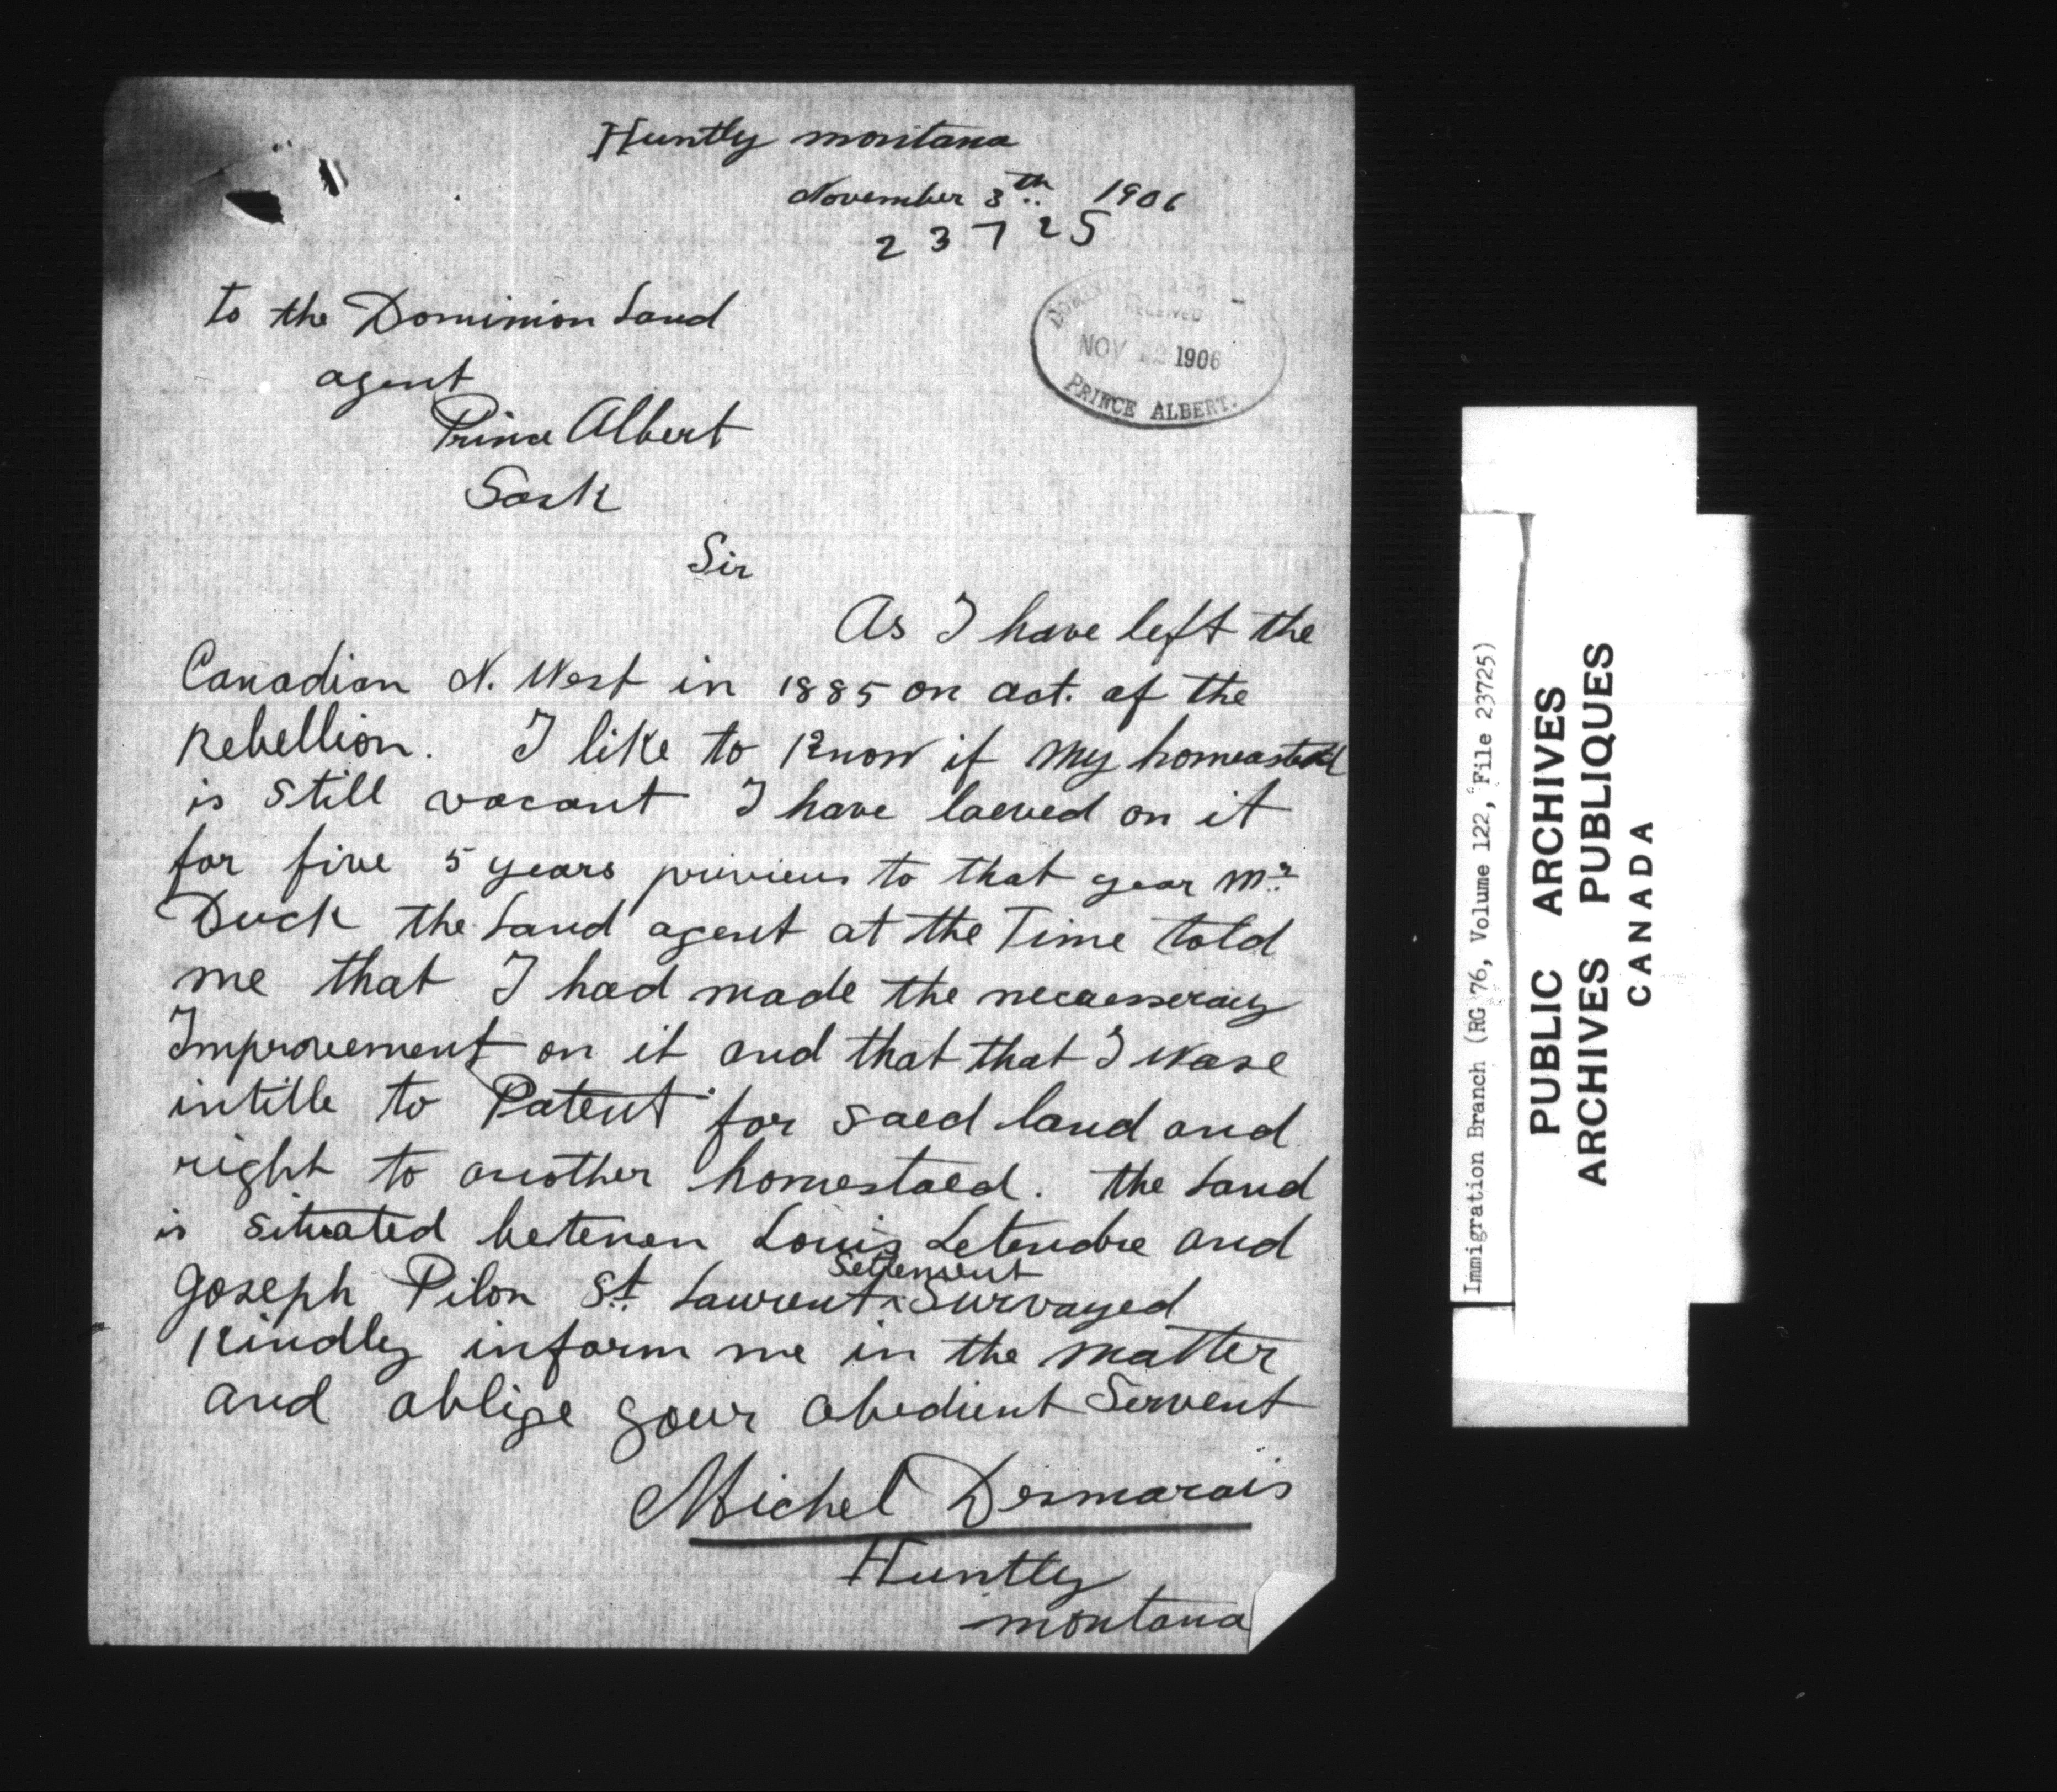 Huntly montana
November 3th 1906
23725
to the Dominion Land
agent
Prince Albert
Sask
RECEIVED
NOV 1906
PRINCE ALBERT.
Sir
As I have left the
Canadian N. West in 1885 on act. of the
Rebellion. I like to Know if my homeasteed
is still vacant I have laeved on it
for five 5 years privieus to that year Mr
Duck the Land agent at the Time told
me that I had made the necaesseraiy
Improvement on it and that that I wase
intitle to Patent for saed land and
right to another homestaed. the Land
is situated betenen Louis Letendre and
Joseph Pilon St. Laurent Settement Survayed
Kindly inform me in the matter
and oblige your obedient Servent
Michel Desmarais
Huntly
montana
Immigration Branch (RG 76, Volume 122, File 23725)
PUBLIC ARCHIVES
ARCHIVES PUBLIQUES
CANADA